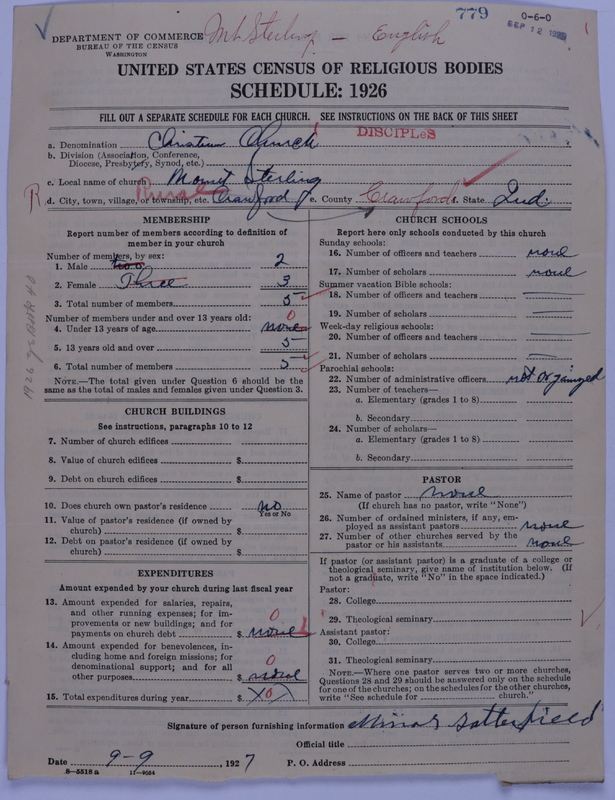 779
0-6-0
SEP 12
Mt Sterling - English
DEPARTMENT OF COMMERCE
BUREAU OF THE CENSUS
WASHINGTON
UNITED STATES CENSUS OF RELIGIOUS BODIES
SCHEDULE: 1926
FILL OUT A SEPARATE SCHEDULE FOR EACH CHURCH. SEE INSTRUCTIONS ON THE BACK OF THIS SHEET
a. Denomination Christian Church
DISCIPLeS
b. Division (Association, Conference, Diocese, Presbytery, Synod, etc.)
c. Local name of church Mount Sterling
Rural
R d. City, town, village, or township, etc. Crawford e. County Crawford f. State Ind.
MEMBERSHIP
Report number of members according to definition of
member in your church
Number of members, by sex:
1. Male two 2
2. Female Three 3
3. Total number of members 5
Number of members under and over 13 years old:
0
4. Under 13 years of age none
5. 13 years old and over 5
6. Total number of members 5
NOTE.—The total given under Question 6 should be the
same as the total of males and females given under Question 3.
CHURCH BUILDINGS
See instructions, paragraphs 10 to 12
7. Number of church edifices
8. Value of church edifices $
9. Debt on church edifices $
10. Does church own pastor's residence no
Yes or No
11. Value of pastor's residence (if owned by
church) $
12. Debt on pastor's residence (if owned by
church) $
EXPENDITURES
Amount expended by your church during last fiscal year
13. Amount expended for salaries, repairs,
and other running expenses; for im-
provements or new buildings; and for
payments on church debt $ none
0
14. Amount expended for benevolences, in-
cluding home and foreign missions; for
denominational support; and for all
other purposes $ none
0
15. Total expenditures during year $ X0X
CHURCH SCHOOLS
Report here only schools conducted by this church
Sunday schools:
16. Number of officers and teachers none
17. Number of scholars none
Summer vacation Bible schools:
18. Number of officers and teachers
19. Number of scholars
Week-day religious schools:
20. Number of officers and teachers
21. Number of scholars
Parochial schools:
22. Number of administrative officers not organized
23. Number of teachers—
a. Elementary (grades 1 to 8)
b. Secondary
24. Number of scholars—
a. Elementary (grades 1 to 8)
b. Secondary
PASTOR
25. Name of pastor none
(If church has no pastor, write "None")
26. Number of ordained ministers, if any, em-
ployed as assistant pastors none
27. Number of other churches served by the
pastor or his assistants none
If pastor (or assistant pastor) is a graduate of a college or
theological seminary, give name of institution below. (If
not a graduate, write "No" in the space indicated.)
Pastor:
28. College
29. Theological seminary
Assistant pastor:
30. College
31. Theological seminary
NOTE.—Where one pastor serves two or more churches,
Questions 28 and 29 should be answered only on the schedule
for one of the churches; on the schedules for the other churches,
write "See schedule for church."
Signature of person furnishing information Satterfield
Official title
Date 9-9, 1927 P. O. Address
8-5518a 11-9054
1926